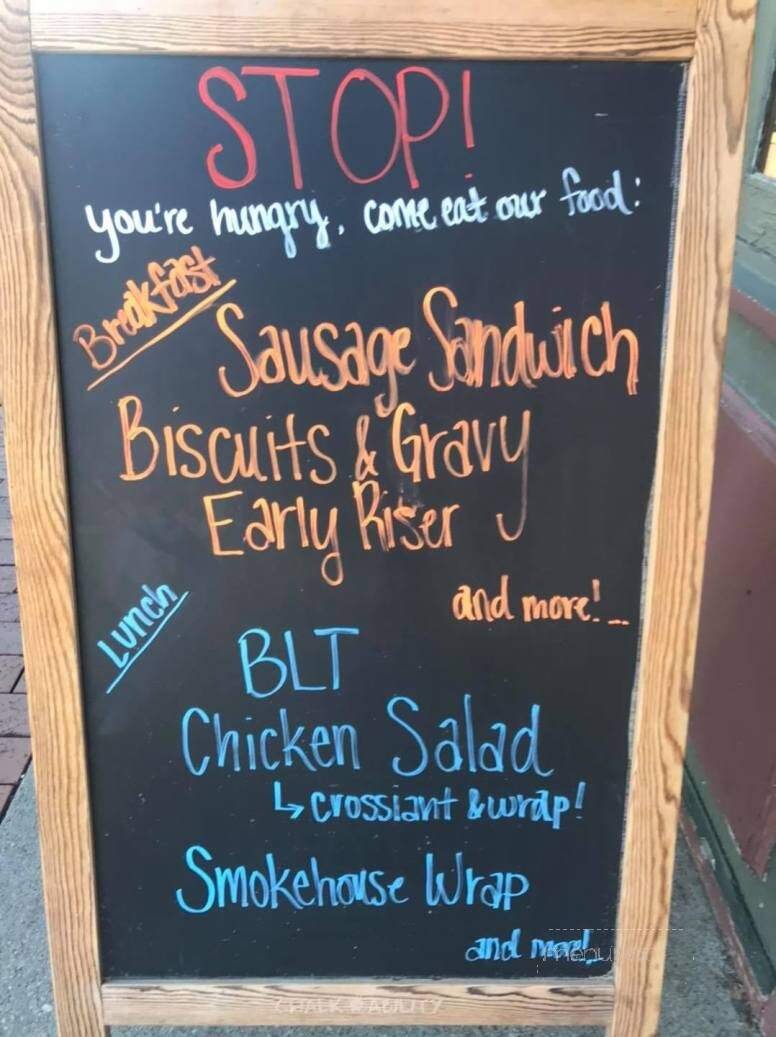 STOP!
you're hungry, come eat our food:
Breakfast
Sausage Sandwich
Biscuits & Gravy
Early Riser
and more!
Lunch
BLT
Chicken Salad
↳ crossiant & wrap!
Smokehouse Wrap
and more!
CHALK ABILITY